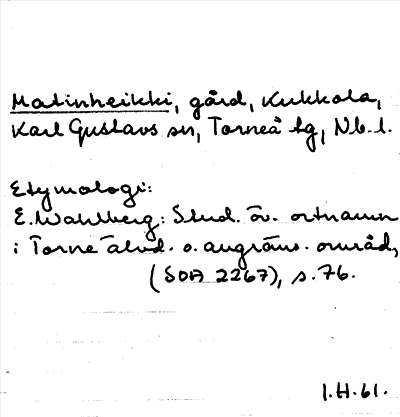 Matinheikki, gård, Kukkola,
Karl Gustavs sn, Torneå tg, Nb. l.
Etymologi:
E. Wahlberg: Stud. öv. ortnamn
i Torne älvd. o. angräns. område,
(SOA 2267), s. 76.
I.H. 61.